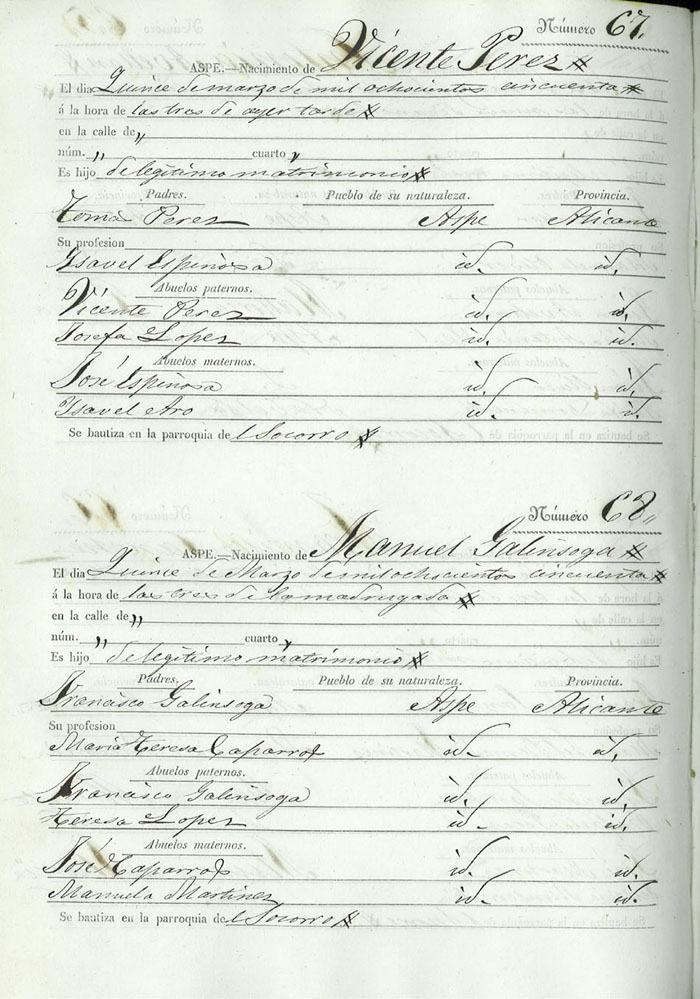 Número 67.
ASPE.—Nacimiento de Vicente Perez
El dia Quince de marzo de mil ochocientos cincuenta
á la hora de las tres de ayer tarde
en la calle de „
núm. „ cuarto „
Es hijo de legitimo matrimonio
Padres. Pueblo de su naturaleza. Provincia.
Tomá Perez Aspe Alicante
Su profesion
Ysavel Espinosa id. id.
Abuelos paternos.
Vicente Perez id. id.
Josefa Lopez id. id.
Abuelos maternos.
José Espinosa id. id.
Ysavel Aro id. id.
Se bautiza en la parroquia de l Socorro
Número 68„
ASPE.—Nacimiento de Manuel Galinsoga
El dia Quince de Marzo de mil ochocientos cincuenta
á la hora de las tres de la madrugada
en la calle de „
núm. „ cuarto „
Es hijo de legitimo matrimonio
Padres. Pueblo de su naturaleza. Provincia.
Francisco Galinsoga Aspe Alicante
Su profesion
Maria Teresa Caparros id. id.
Abuelos paternos.
Francisco Galinsoga id. id.
Teresa Lopez id. id.
Abuelos maternos.
José Caparros id. id.
Manuela Martinez id. id.
Se bautiza en la parroquia de l Socorro